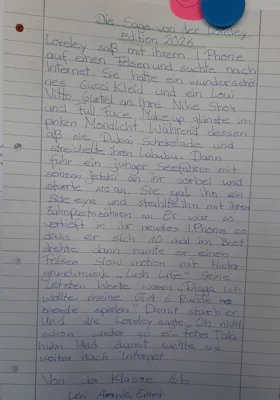 Die Sage von der Loreley
Edition 2026
Loreley saß mit ihrem I Phone
auf einen Felsen und suchte nach
Internet. Sie hatte ein wunderschö
nes Gucci Kleid und ein Lou
Vitto Gürtel an. Ihre Nike Shox
und Full Face Make up glänzte im
pinken Mondlicht. Während dessen
aß sie Dubai Schokolade und
streichelte ihren Labubu. Dann
fuhr ein junger Seefahrer mit
seinem Jetski an ihr vorbei und
starrte sie an. Sie gab ihn ein
Side eye und strahlte ihn mit ihren
Zahnpastazähnen an. Er war so
vertieft in ihr neustes I Phone so
dass er sich 10 mal im Boot
drehte dann rammte er einen
Felsen Slow motion mit Hinter
grundmusik „Lush Life" Seine
letzten Worte waren „Digga ich
wollte meine GTA 6 Runde
beende spielen". Damit starb er
Und die Loreley sagte „Oh nicht
schon wieder so ein toter Tala
hun. Und damit suchte sie
weiter nach Internet.
Von der Klasse 6b